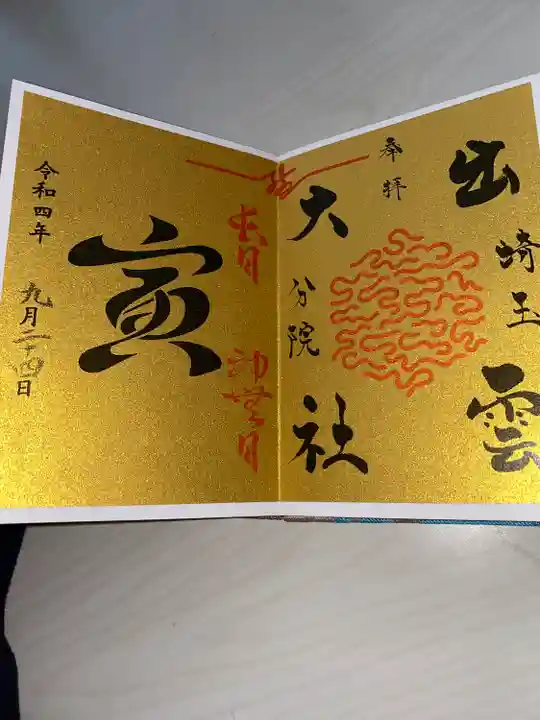 奉拝
出雲
埼玉
大社
分院
寅
令和四年
九月二十四日